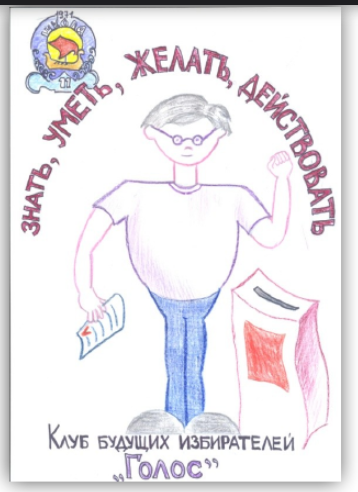 1971
11
ЗНАТЬ, УМЕТЬ, ЖЕЛАТЬ, ДЕЙСТВОВАТЬ
КЛУБ БУДУЩИХ ИЗБИРАТЕЛЕЙ
„ГОЛОС”